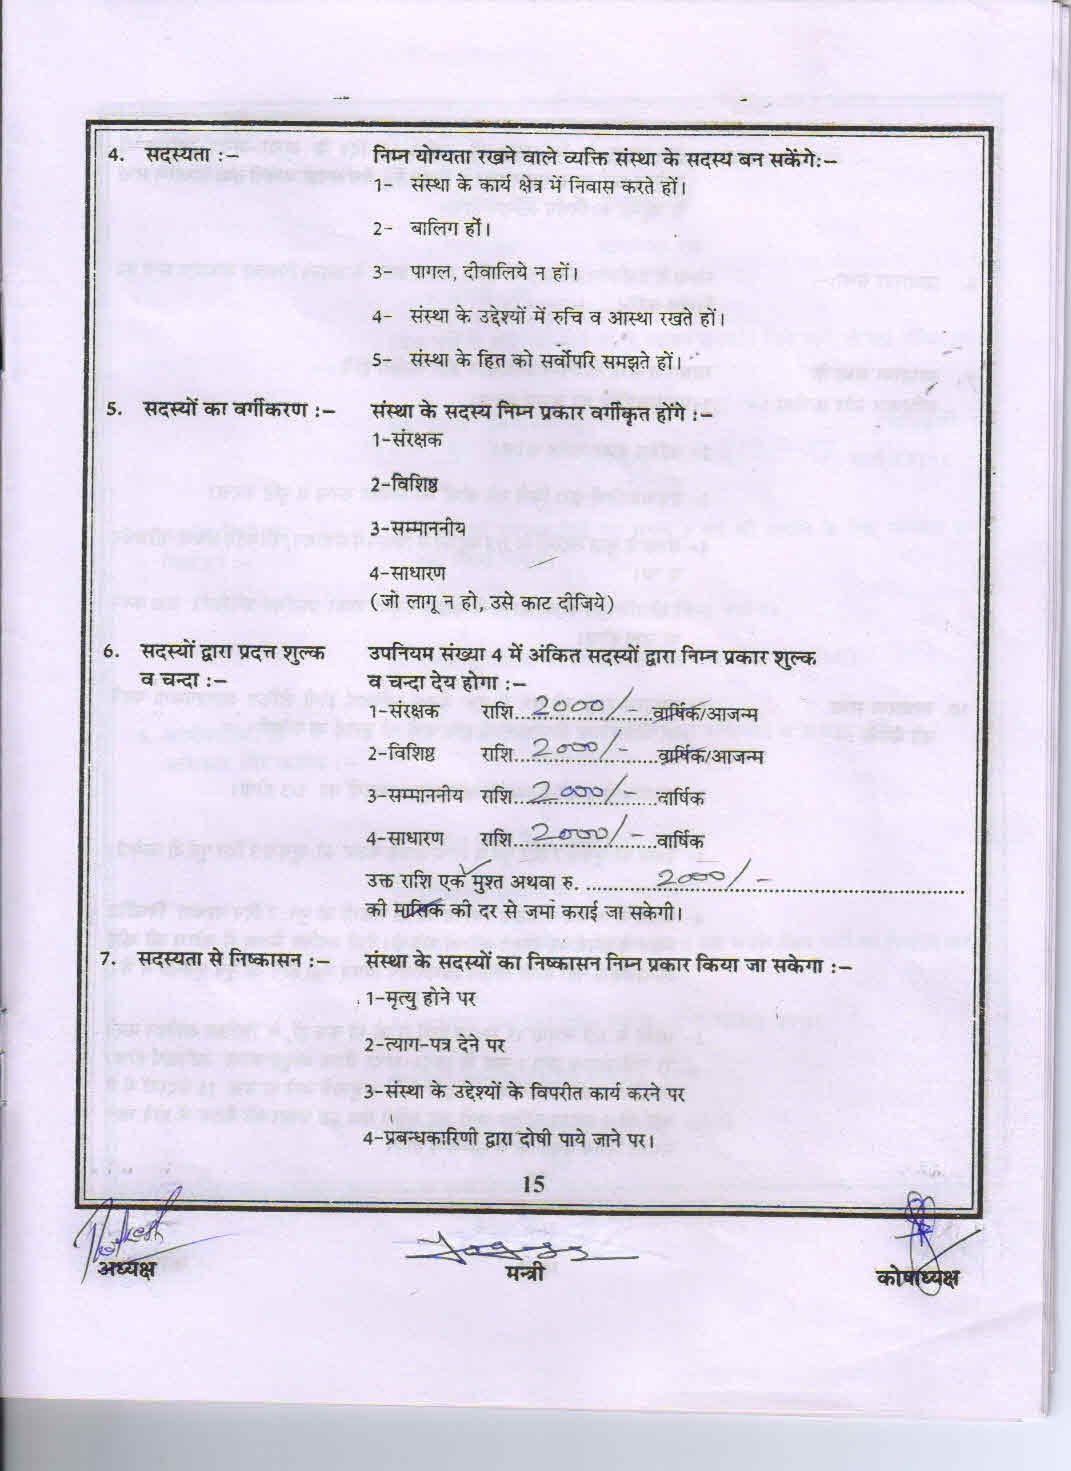 4. सदस्यता :– निम्न योग्यता रखने वाले व्यक्ति संस्था के सदस्य बन सकेंगे:–
1– संस्था के कार्य क्षेत्र में निवास करते हों।
2– बालिग हों।
3– पागल, दीवालिये न हों।
4– संस्था के उद्देश्यों में रुचि व आस्था रखते हों।
5– संस्था के हित को सर्वोपरि समझते हों।
5. सदस्यों का वर्गीकरण :– संस्था के सदस्य निम्न प्रकार वर्गीकृत होंगे :–
1–संरक्षक
2–विशिष्ठ
3–सम्माननीय
4–साधारण
(जो लागू न हो, उसे काट दीजिये)
6. सदस्यों द्वारा प्रदत्त शुल्क उपनियम संख्या 4 में अंकित सदस्यों द्वारा निम्न प्रकार शुल्क
व चन्दा :– व चन्दा देय होगा :–
1–संरक्षक राशि 2000/- वार्षिक/आजन्म
2–विशिष्ठ राशि 2000/- वार्षिक/आजन्म
3–सम्माननीय राशि 2000/- वार्षिक
4–साधारण राशि 2000/- वार्षिक
उक्त राशि एक मुश्त अथवा रु. 2000/-
की मासिक की दर से जमा कराई जा सकेगी।
7. सदस्यता से निष्कासन :– संस्था के सदस्यों का निष्कासन निम्न प्रकार किया जा सकेगा :–
1–मृत्यु होने पर
2–त्याग-पत्र देने पर
3–संस्था के उद्देश्यों के विपरीत कार्य करने पर
4–प्रबन्धकारिणी द्वारा दोषी पाये जाने पर।
15
अध्यक्ष मन्त्री कोषाध्यक्ष